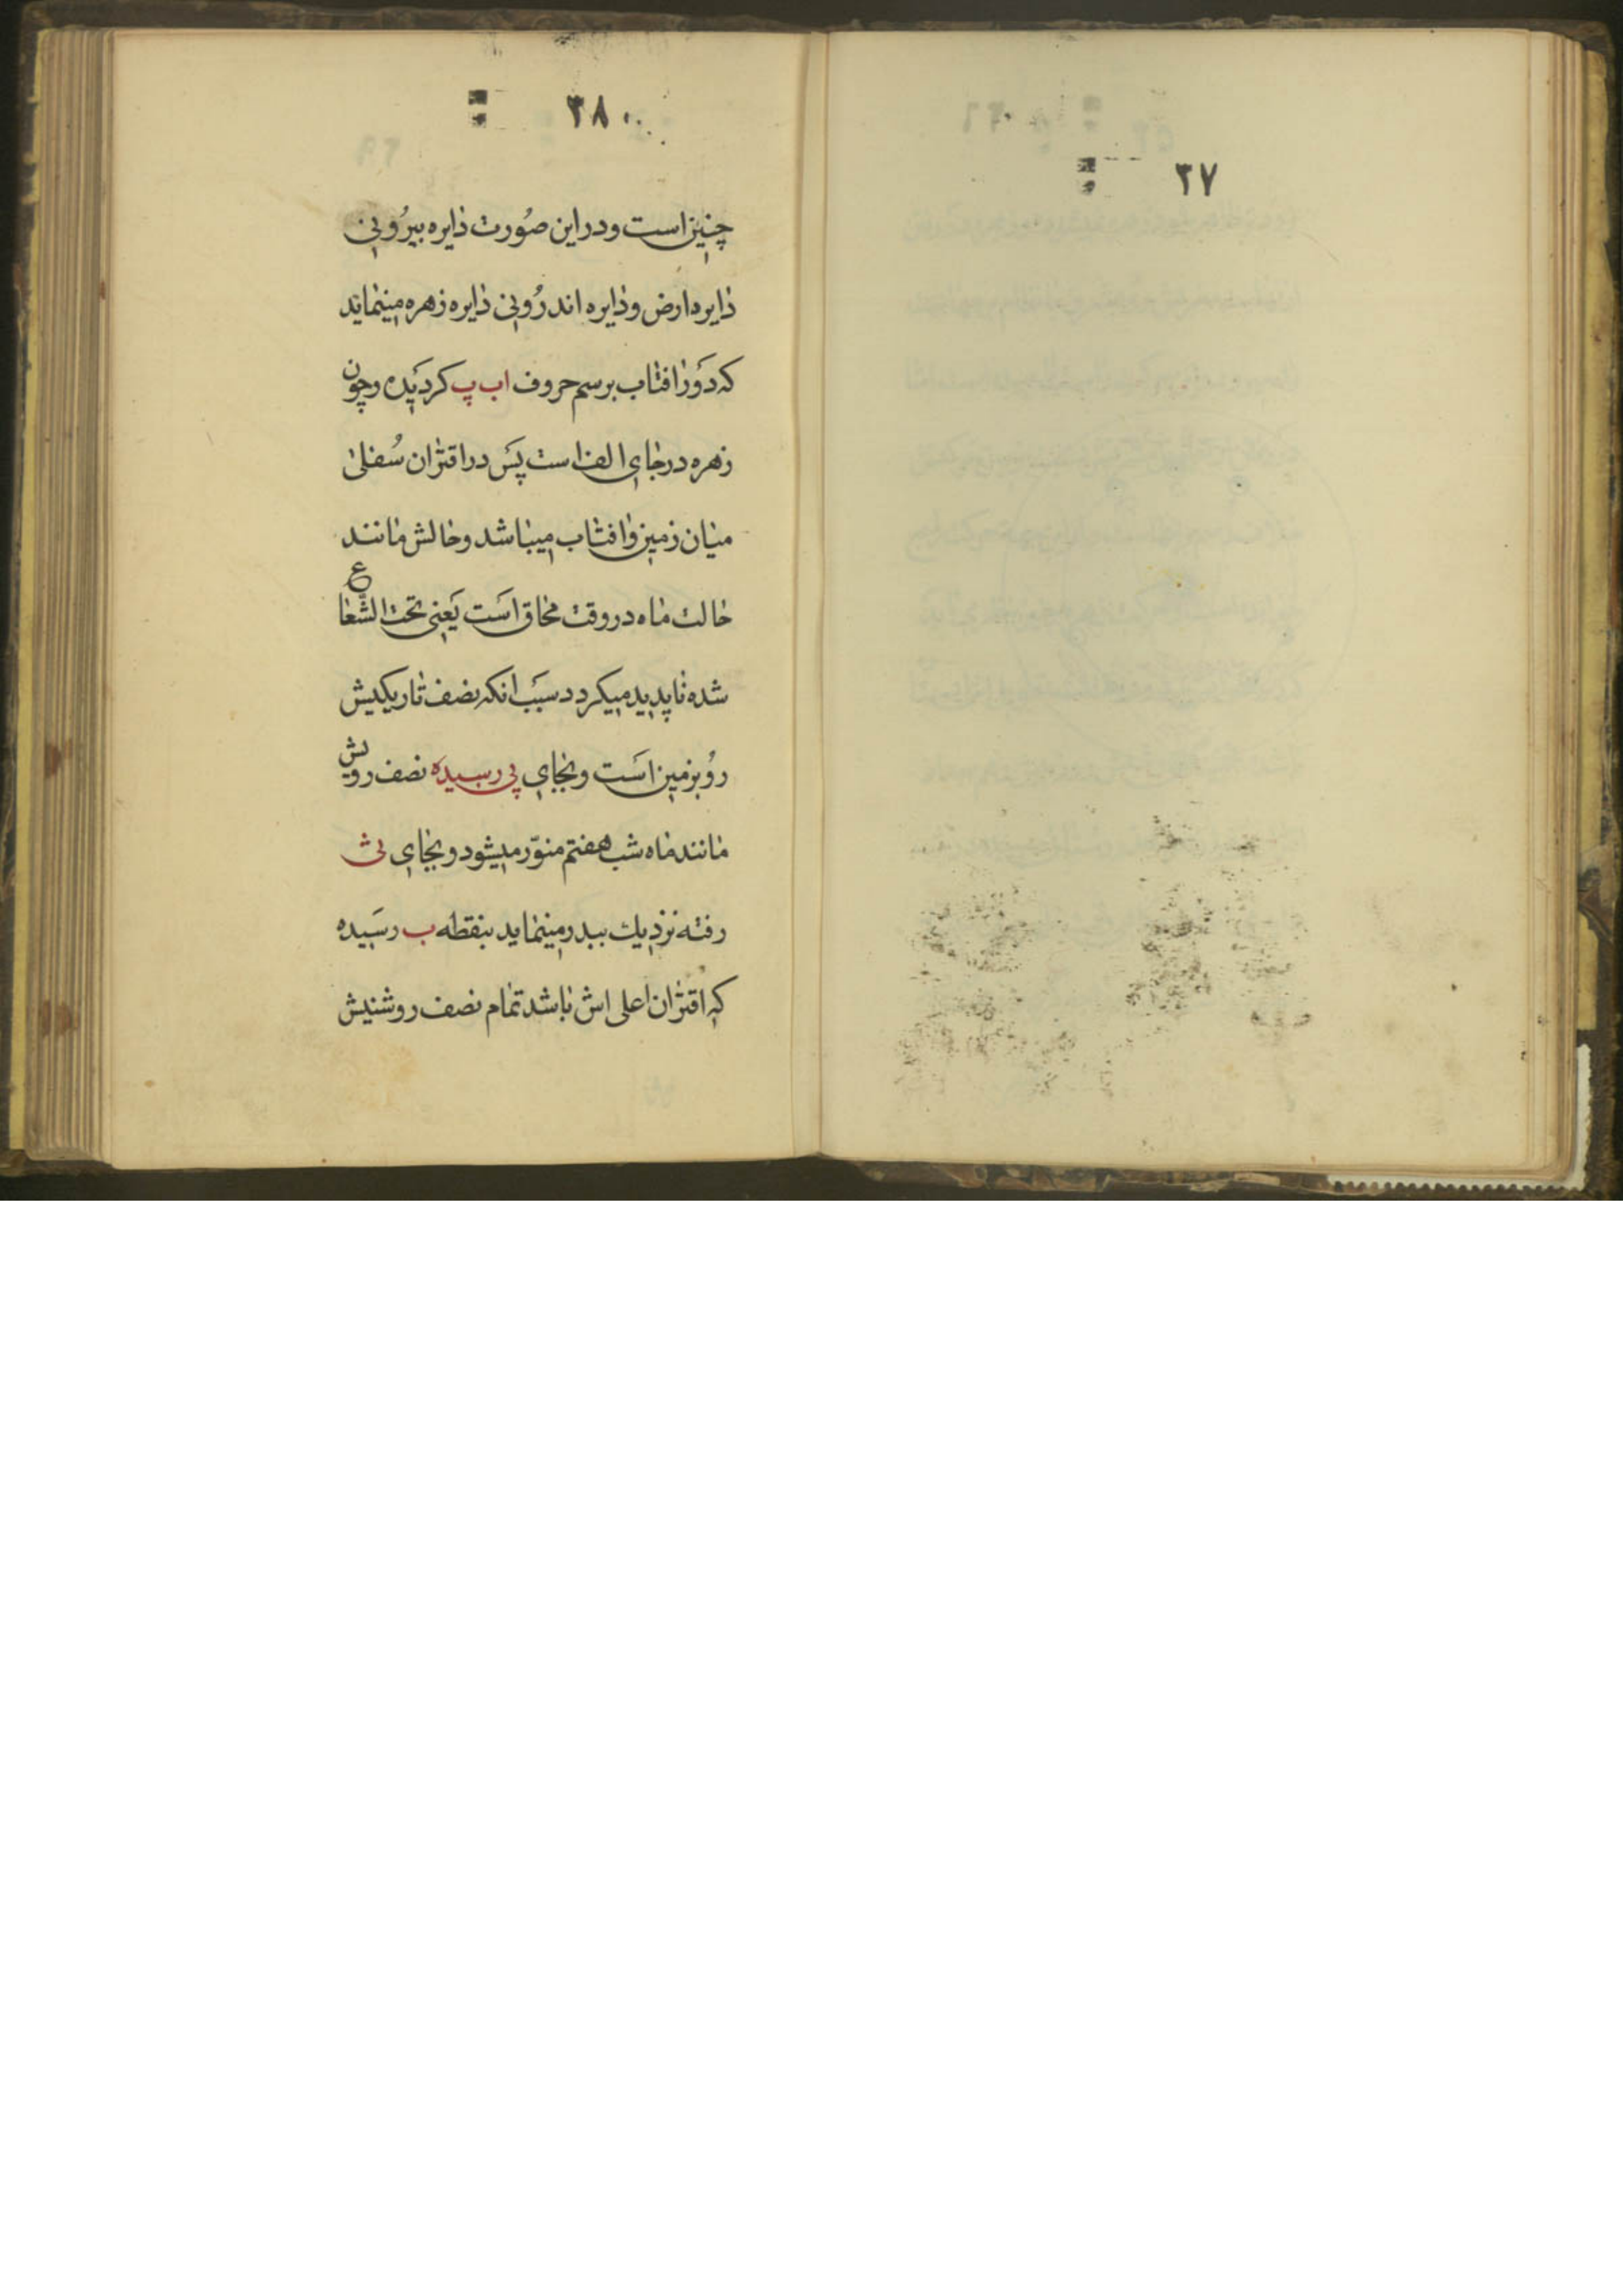 ۳۷
۳۸
چنین است و در این صُورت دایره بیرُونی
دایره ارض و دایره اندرُونی دایره زهره مینماید
که دَور افتاب برسم حروف اب پ کردیَده و چون
زهره در جای الف است پَس در اقتران سُفلی
میان زمین و افتاب میباشد و حالش مانند
حالت ماه در وقت محاق اَست یَعنی تحت الشّعاع
شده ناپدید میکردد سبَب انکه نصف تاریکیش
رُو بزمین اَست و بجای پی رسیده نصف رویش
مانند ماه شب هفتم منوّر میشود و بجای
رفته نزدیک ببدر مینماید بنقطه ب رسَیده
که اقتران اعلی اش باشد تمام نصف روشنیش